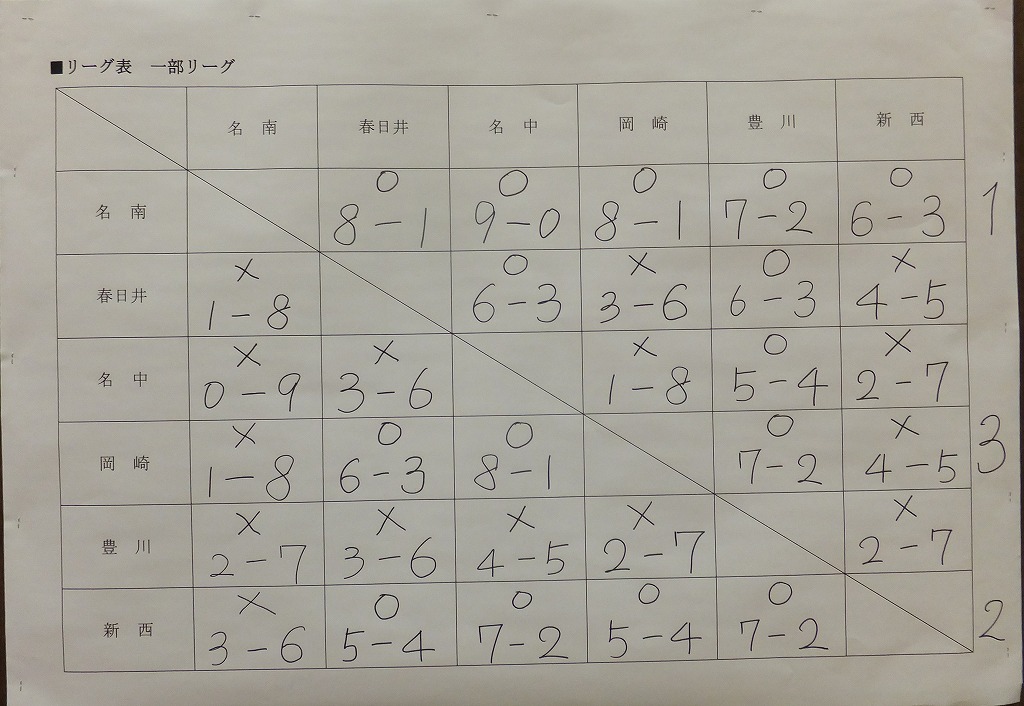 ■リーグ表　一部リーグ
名　南 春日井 名　中 岡　崎 豊　川 新　西
○ ○ ○ ○ ○
名　南 8－1 9－0 8－1 7－2 6－3 1
× ○ × ○ ×
春日井 1－8 6－3 3－6 6－3 4－5
× × × ○ ×
名　中 0－9 3－6 1－8 5－4 2－7
× ○ ○ ○ ×
岡　崎 1－8 6－3 8－1 7－2 4－5 3
× × × × ×
豊　川 2－7 3－6 4－5 2－7 2－7
× ○ ○ ○ ○
新　西 3－6 5－4 7－2 5－4 7－2 2